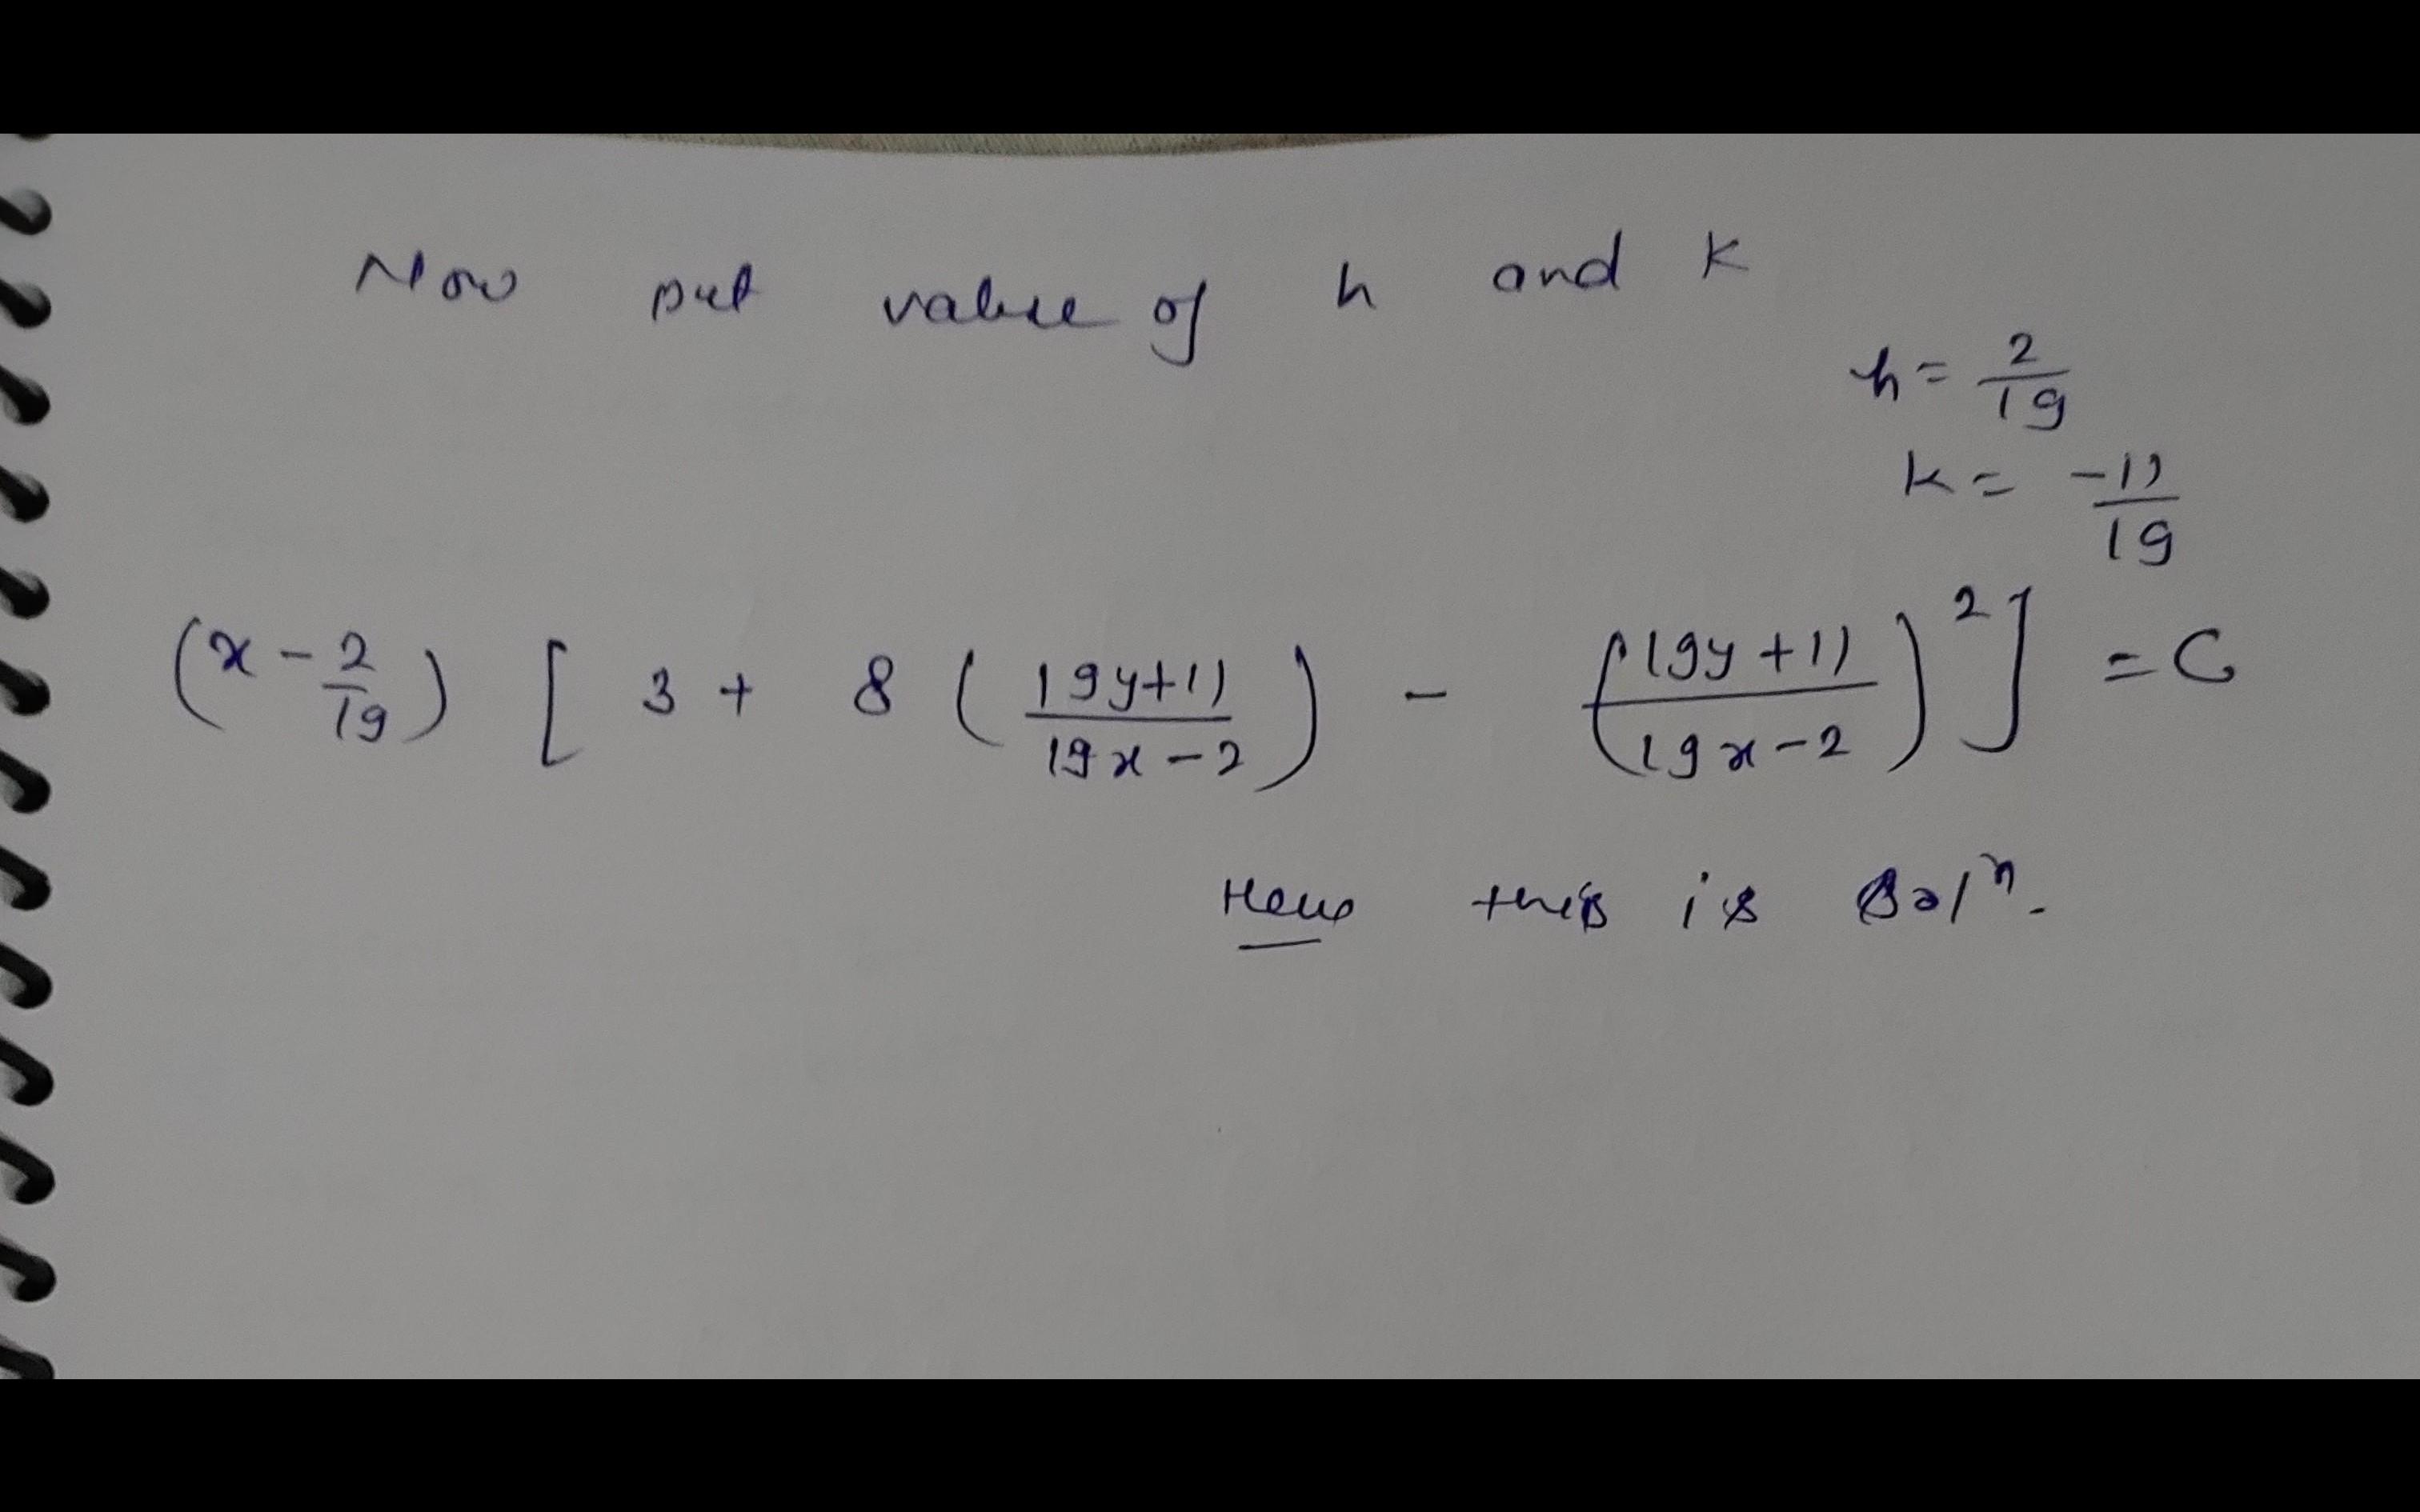 Now put value of h and k
h = 2/19
k = -11/19
(x - 2/19) [ 3 + 8 ( 19y+11 / 19x-2 ) - ( 19y+11 / 19x-2 )² ] = C
this is Solⁿ.